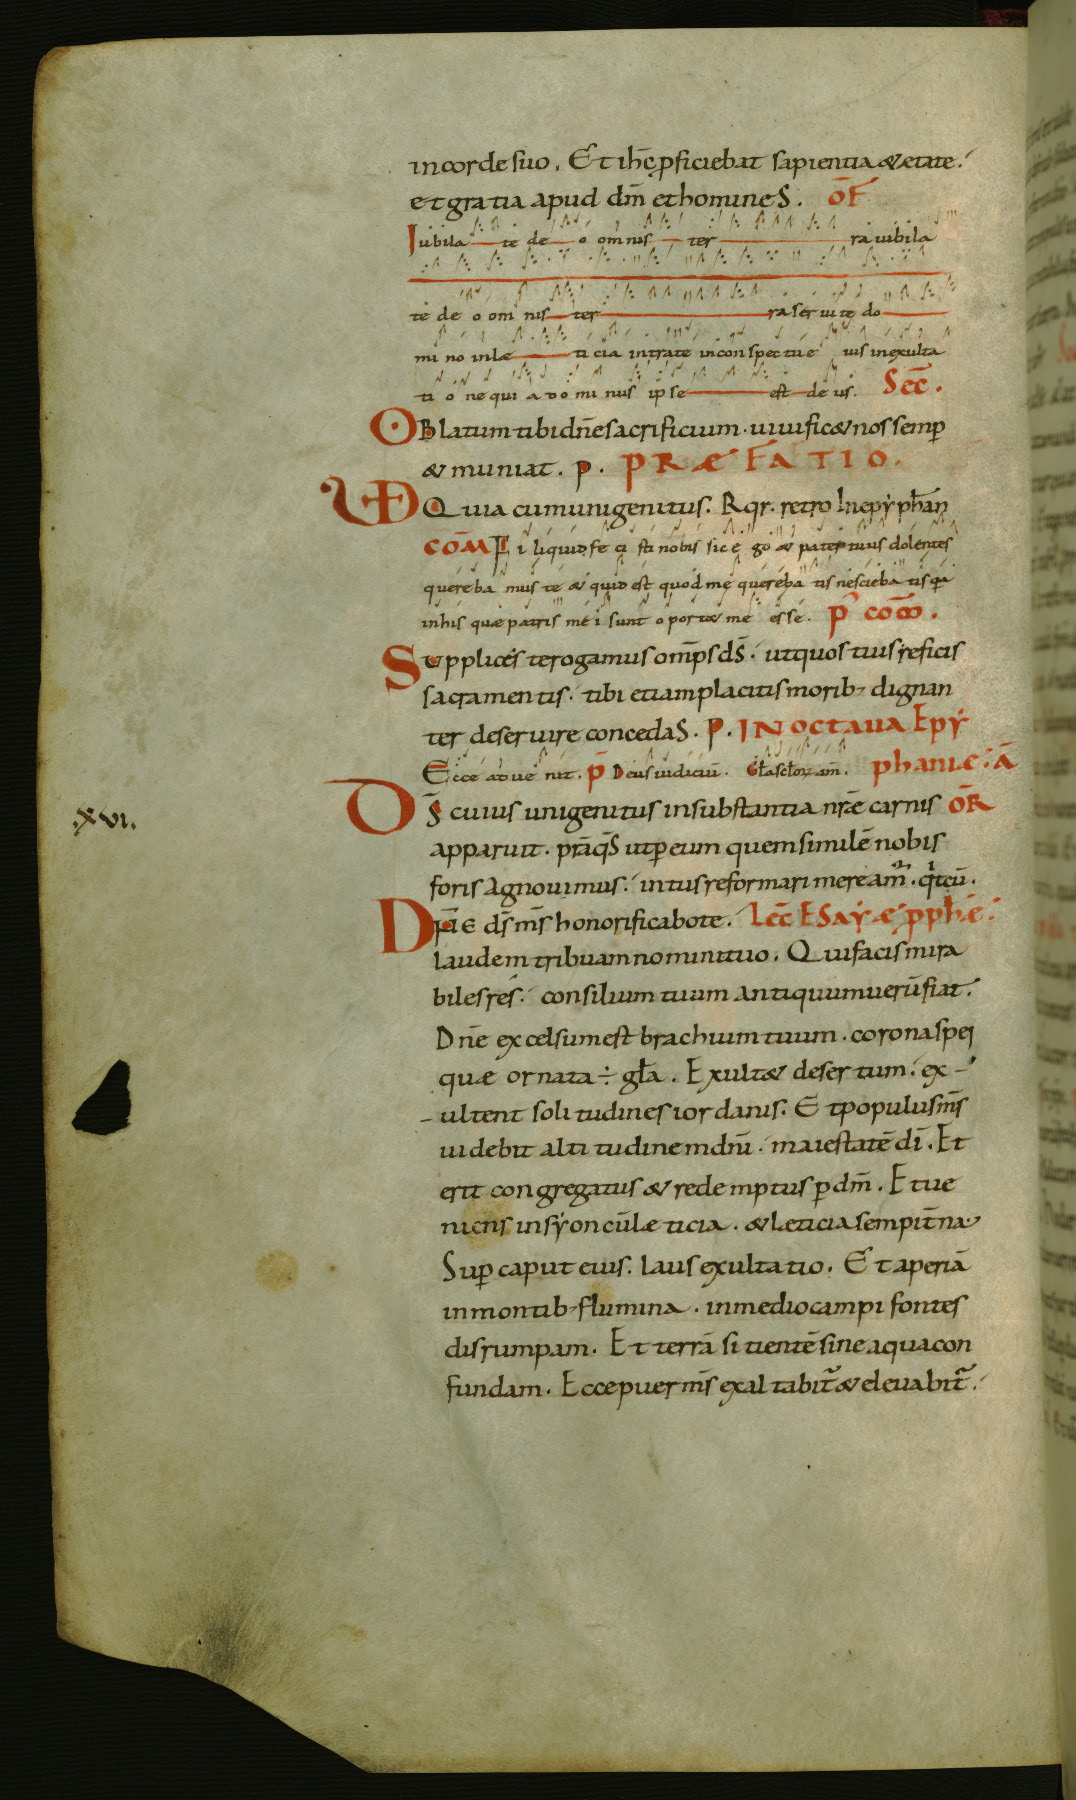 in corde suo. Et ihc̄ p̱ficiebat sapientia & etate.
et gratia apud dm̄ et homineS. OF̄
Iubila te de o omnis ter ra iubila
te de o om nis ter ra ser uite do
mi no in læ ti cia intrate in con spec tu e ius in exulta
ti o ne qui a do mi nus ipse est de us. Sec̄.
OBlatum tibi dn̄e sacrificium. uiuific& nos semp̱
& muniat. p. PRÆFATIO.
VD Quia cum unigenitus. Rqr. retro In epyphan̄
COM̄ Fi li quid fe ci sti nobis sic e go & pater tuus dolentes
quereba mus te & quid est quod me quereba tis nesciebatis qa
in his quæ patris me i sunt oport& me esse. p̄ com̄.
Supplices te rogamus omp̄s ds̄. ut quos tuis reficis
sacramentis. tibi etiam placitis morib; dignan
ter deseruire concedaS. P. IN OCTAVA Epy
Ecce adue nit. p̄ Deus iudiciū. Gła scłor am̄. phaniæ. Ā
.XVI.
DS̄ cuius unigenitus in substantia nrāe carnis OR̄
apparuit. prāqS̄ ut p̱ eum quem similē nobis
foris agnouimus. intus reformari meream̄. qi tecū.
Dn̄e ds̄ ms̄ honorificabo te. Lec̄ ESAyæ pph̄e.
laudem tribuam nomini tuo. Qui facis mira
biles res. consilium tuum antiquum uerū fiat.
Dn̄e excelsum est brachium tuum. corona spei
quæ ornata ÷ gła. Exult& desertum. ex-
-ultent solitudines iordanis. Et populus ms̄
uidebit altitudinem dn̄i. maiestatē dī. Et
erit congregatus & redemptus p̱ dm̄. Et ue
niens in syon cū læticia. & leticia sempit̄na
Sup̱ caput eius. laus exultatio. Et aperiā
in montib; flumina. in medio campi fontes
disrumpam. Et terrā sitientē sine aqua con
fundam. Ecce puer ms̄ exaltabit̄ & eleuabit̄.